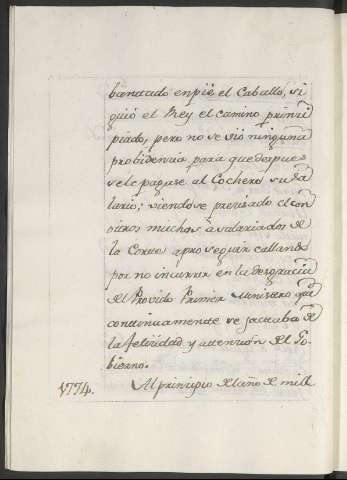 bantado en pie el Caballo, si
guió el Rey el camino princi
piado, pero no se vió ninguna
probidencia para que despues
se le pagase al Cochero su sa
lario; siendose precisado el con
otros muchos asalariados de
la Corte a proseguir callando
por no incurrir en la desgracia
del Provido Primer Ministro que
continuamente se jactaba de
la felicidad y atencion del Go-
bierno.
1774. Al principio del año de mill